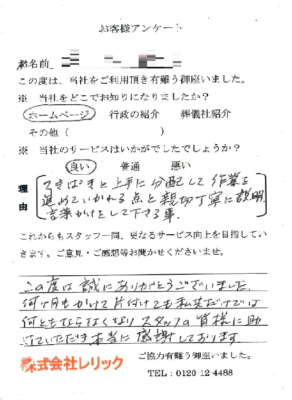 お客様アンケート
お名前
この度は、当社をご利用頂き有難う御座いました。
※ 当社をどこでお知りになりましたか?
ホームページ 行政の紹介 葬儀社紹介
その他（ ）
※ 当社のサービスはいかがでしたでしょうか?
良い 普通 悪い
理由
てきぱきと上手に分配して作業を
進めていかれる点と親切丁寧に説明
言葉かけをして下さる事。
これからもスタッフ一同、更なるサービス向上を目指してい
きます。ご意見・ご感想等お聞かせくださいませ。
この度は誠にありがとうございました。
何ヶ月もかけて片付けても私共だけでは
何ともならなくなりスタッフの皆様に助
けていただき本当に感謝しております。
株式会社レリック
ご協力有難う御座いました。
TEL：0120-12-4488